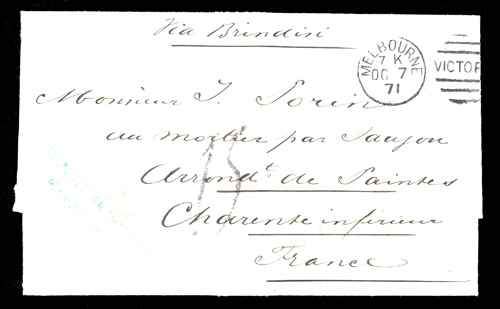 Via Brindisi
MELBOURNE
7 K
OC 7
71
VICTOR
Monsieur J. Sorin
au mortier par Saujon
Arrondt. de Saintes
Charente inférieur
France